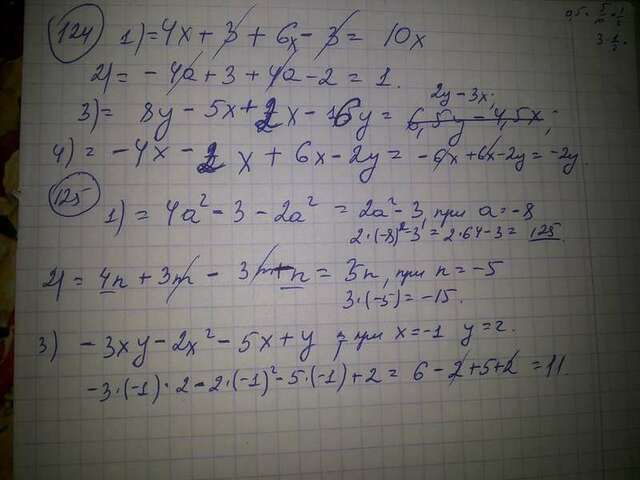 0,5 = 5/10 = 1/2
124 1) = 4x + 3 + 6x - 3 = 10x
3 · 1/2
2) = - 4a + 3 + 4a - 2 = 1.
2y - 3x;
3) = 8y - 5x + 2x - 16y = 6,5y - 4,5x;
4) = -4x - 2x + 6x - 2y = -6x + 6x - 2y = -2y.
125
1) = 4a² - 3 - 2a² = 2a² - 3, при a = -8
2·(-8)² - 3 = 2·64 - 3 = 125.
2) = 4n + 3m - 3m + n = 3n, при n = -5
3·(-5) = -15.
3) - 3xy - 2x² - 5x + y при x = -1 y = 2.
-3·(-1)·2 - 2·(-1)² - 5·(-1) + 2 = 6 - 2 + 5 + 2 = 11